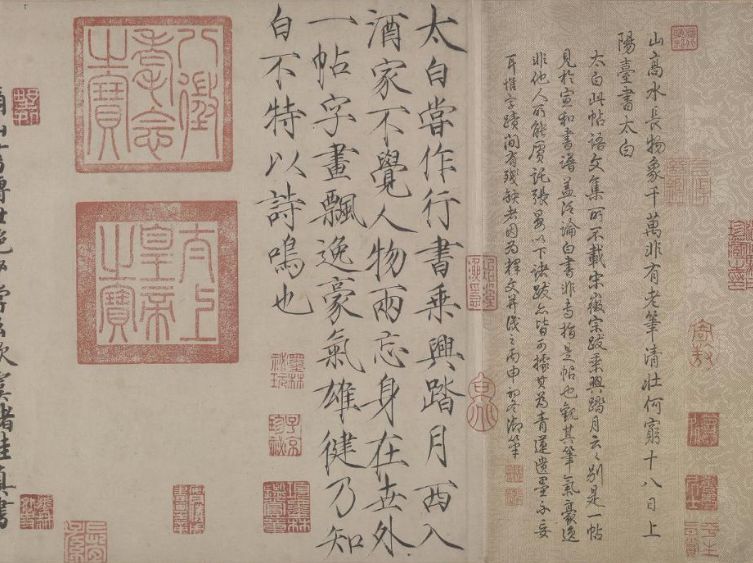 山高水長物象千萬非有老筆清壯何窮十八日上
陽臺書太白
太白此帖語文集所不載宋徽宗跋乘興踏月云〻別是一帖
見於宣和書譜蓋泛論白書非專指是帖也觀其筆氣豪逸
非他人所能贋託張晏以下諸跋亦皆可據其為青蓮遺墨不妄
耳惟字蹟間有殘缺者因為釋文并識之丙申初冬御筆
太白嘗作行書乘興踏月西入
酒家不覺人物兩忘身在世外
一帖字畫飄逸豪氣雄健乃知
白不特以詩鳴也
八徵耄念之寶
太上皇帝之寶
書傳世絕少嘗云歐虞褚陸真書